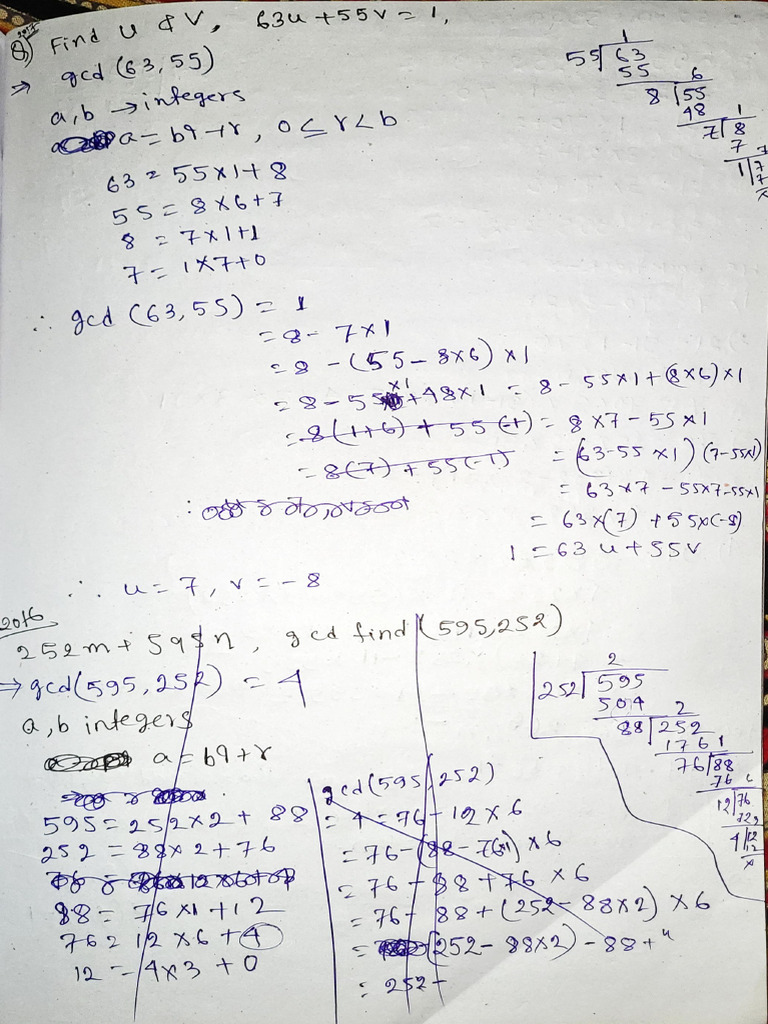 Q) 2017 Find u & v, 63u + 55v = 1,
⇒ gcd (63, 55)
a, b → integers
a = bq + r, 0 ≤ r < b
63 = 55 × 1 + 8
55 = 8 × 6 + 7
8 = 7 × 1 + 1
7 = 1 × 7 + 0
1
55 63
55 6
8 55
48 1
7 8
7 7
1 7
7
x
∴ gcd (63, 55) = 1
= 8 - 7 × 1
= 8 - (55 - 8×6) × 1
= 8 - 55 ×1 + 48 × 1 = 8 - 55×1 + (8×6) × 1
= 8(1+6) + 55 (-1) = 8 × 7 - 55 × 1
= 8(7) + 55(-1) = (63-55 ×1) (7-55×1)
= 63×7 - 55×7-55×1
= 63×(7) + 55×(-8)
1 = 63 u + 55v
∴ u = 7, v = -8
2016
252m + 595n, gcd find (595, 252)
⇒ gcd(595, 252) = 4
a, b integers
a = bq + r
595 = 252 × 2 + 88
252 = 88 × 2 + 76
88 = 76 × 1 + 12
76 = 12 × 6 + 4
12 = 4 × 3 + 0
gcd (595, 252)
= 4 = 76 - 12 × 6
= 76 - (88 - 76×1) × 6
= 76 - 88 + 76 × 6
= 76 - 88 + (252 - 88×2) × 6
= (252 - 88×2) - 88 + "
= 252 -
2
252 595
504 2
88 252
176 1
76 88
76 6
12 76
72
4 12
12
x